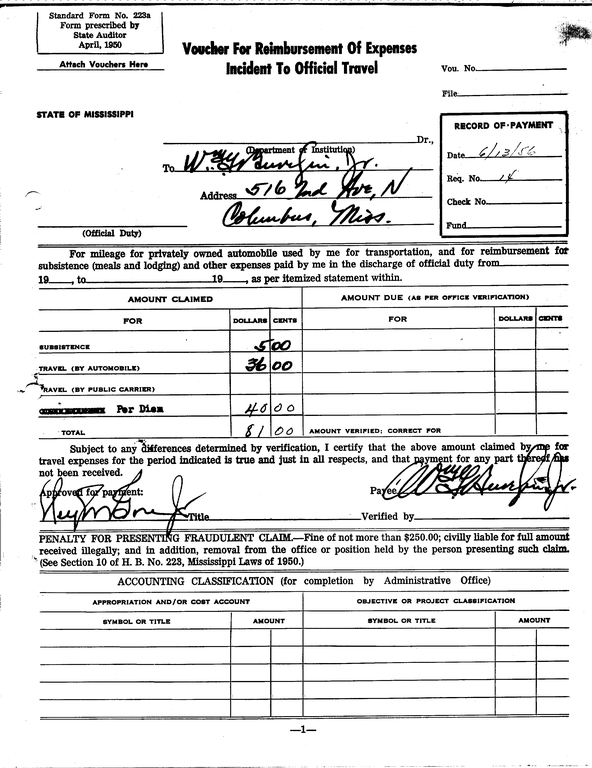 Standard Form No. 223a
Form prescribed by
State Auditor
April, 1950
Attach Vouchers Here
Voucher For Reimbursement Of Expenses
Incident To Official Travel
Vou. No.
File
STATE OF MISSISSIPPI
RECORD OF PAYMENT
Date 6/13/56
Req. No. 14
Check No.
Fund
Dr.,
(Department of Institution)
To Jr.
Address 516 2nd Ave, N
Columbus, Miss.
(Official Duty)
For mileage for privately owned automobile used by me for transportation, and for reimbursement for
subsistence (meals and lodging) and other expenses paid by me in the discharge of official duty from
19 , to 19 , as per itemized statement within.
AMOUNT CLAIMED AMOUNT DUE (AS PER OFFICE VERIFICATION)
FOR DOLLARS CENTS FOR DOLLARS CENTS
SUBSISTENCE 5 00
TRAVEL (BY AUTOMOBILE) 36 00
TRAVEL (BY PUBLIC CARRIER)
Per Diem 40 00
TOTAL 81 00 AMOUNT VERIFIED; CORRECT FOR
Subject to any differences determined by verification, I certify that the above amount claimed by me for
travel expenses for the period indicated is true and just in all respects, and that payment for any part thereof has
not been received.
Approved for payment: Payee
Title Verified by
PENALTY FOR PRESENTING FRAUDULENT CLAIM.—Fine of not more than $250.00; civilly liable for full amount
received illegally; and in addition, removal from the office or position held by the person presenting such claim.
(See Section 10 of H. B. No. 223, Mississippi Laws of 1950.)
ACCOUNTING CLASSIFICATION (for completion by Administrative Office)
APPROPRIATION AND/OR COST ACCOUNT OBJECTIVE OR PROJECT CLASSIFICATION
SYMBOL OR TITLE AMOUNT SYMBOL OR TITLE AMOUNT
—1—